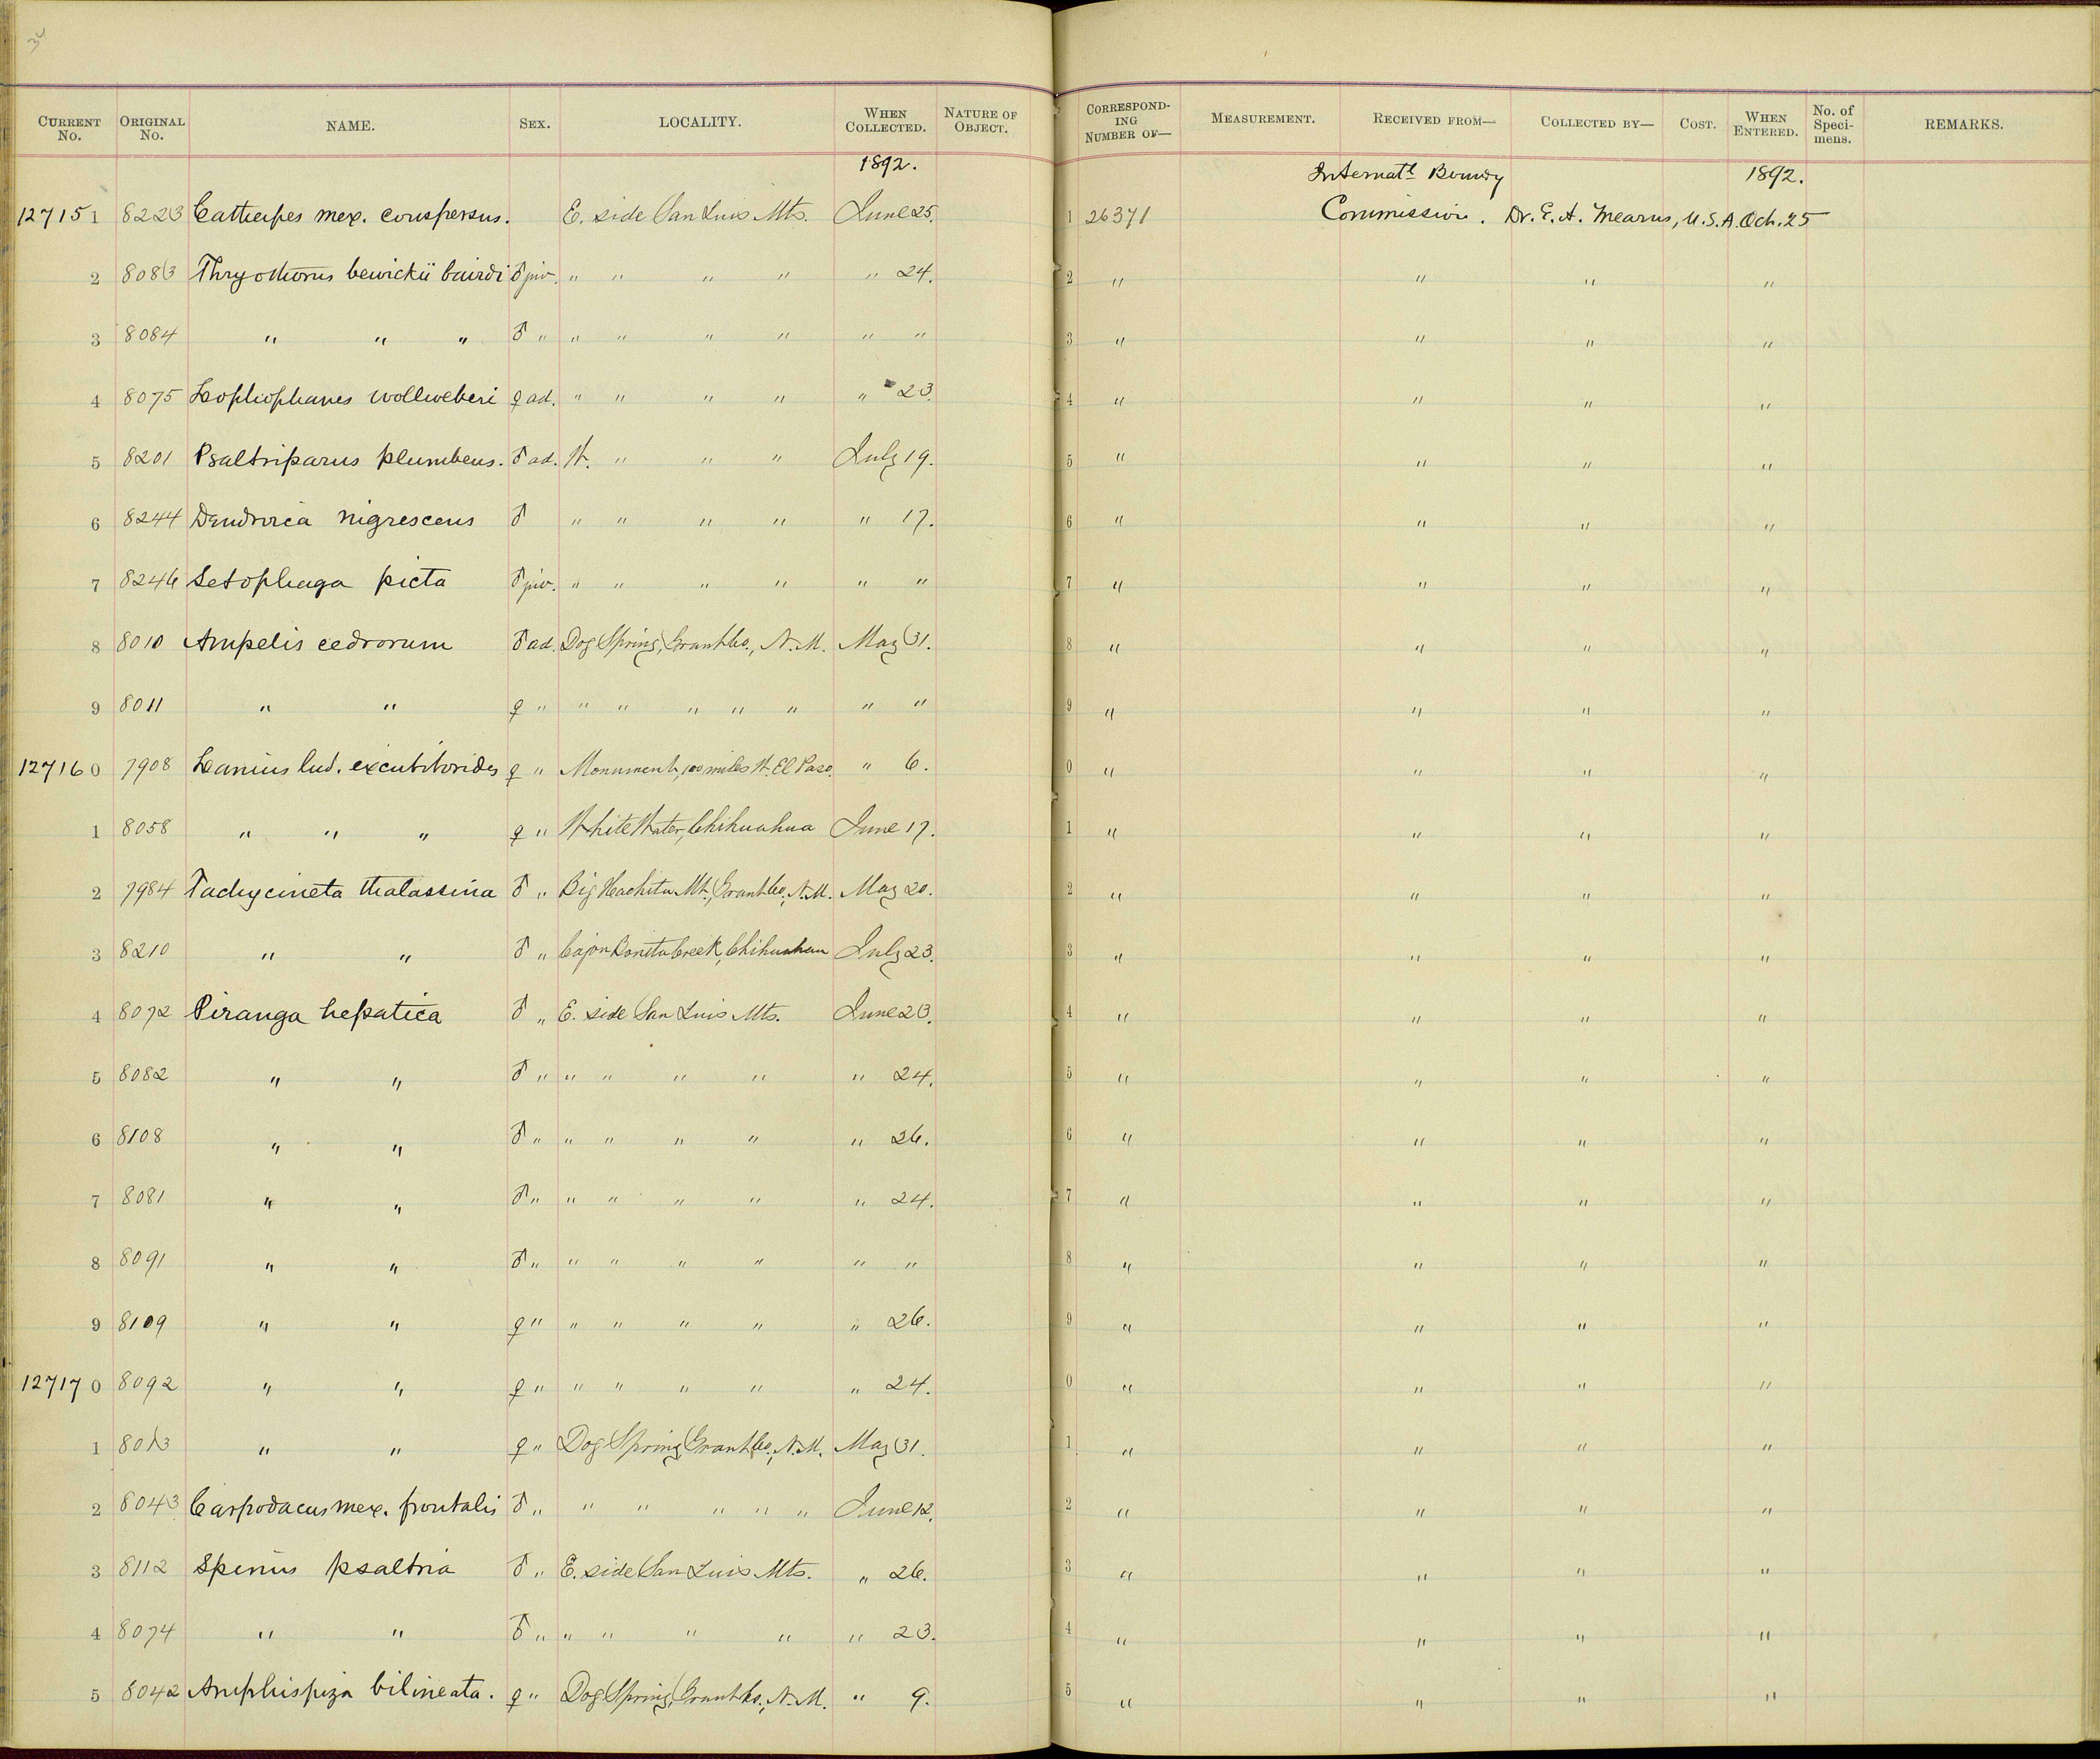 CURRENT No. ORIGINAL No. NAME. SEX. LOCALITY. WHEN COLLECTED. NATURE OF OBJECT. CORRESPOND-ING NUMBER OF— MEASUREMENT. RECEIVED FROM— COLLECTED BY— COST. WHEN ENTERED. No. of Speci-mens. REMARKS.
1892. Internatl Boundy 1892.
127151 8223 Catherpes mex. conspersus. E. side San Luis Mts. June 25. 1 26371 Commission. Dr. E. A. Mearns, U.S.A. Oct. 25
2 8083 Thryothorus bewickii bairdi ♂ juv. " " " " " 24. 2 " " " "
3 8084 " " " ♂ " " " " " " " 3 " " " "
4 8075 Lophophanes wollweberi ♀ ad. " " " " " 23. 4 " " " "
5 8201 Psaltriparus plumbeus. ♂ ad. W. " " " July 19. 5 " " " "
6 8244 Dendroica nigrescens ♂ " " " " " 17. 6 " " " "
7 8246 Setophaga picta ♂ juv. " " " " " " 7 " " " "
8 8010 Ampelis cedrorum ♂ ad. Dog Spring, Grant Co., N.M. May 31. 8 " " " "
9 8011 " " ♀ " " " " " " " " 9 " " " "
127160 7908 Lanius lud. excubitorides ♀ " Monument, 100 miles W. El Paso. " 6. 0 " " " "
1 8058 " " " ♀ " White Water, Chihuahua June 17. 1 " " " "
2 7984 Tachycineta thalassina ♂ " Big Hachita Mt., Grant Co., N.M. May 20. 2 " " " "
3 8210 " " ♂ " Cajon Bonita Creek, Chihuahua July 23. 3 " " " "
4 8072 Piranga hepatica ♂ " E. side San Luis Mts. June 23. 4 " " " "
5 8082 " " ♂ " " " " " " 24. 5 " " " "
6 8108 " " ♂ " " " " " " 26. 6 " " " "
7 8081 " " ♂ " " " " " " 24. 7 " " " "
8 8091 " " ♂ " " " " " " " 8 " " " "
9 8109 " " ♀ " " " " " " 26. 9 " " " "
127170 8092 " " ♀ " " " " " " 24. 0 " " " "
1 8013 " " ♀ " Dog Spring, Grant Co., N.M. May 31. 1 " " " "
2 8043 Carpodacus mex. frontalis ♂ " " " " " " June 12. 2 " " " "
3 8112 Spinus psaltria ♂ " E. side San Luis Mts. " 26. 3 " " " "
4 8074 " " ♂ " " " " " " 23. 4 " " " "
5 8042 Amphispiza bilineata. ♀ " Dog Spring, Grant Co., N.M. " 9. 5 " " " "